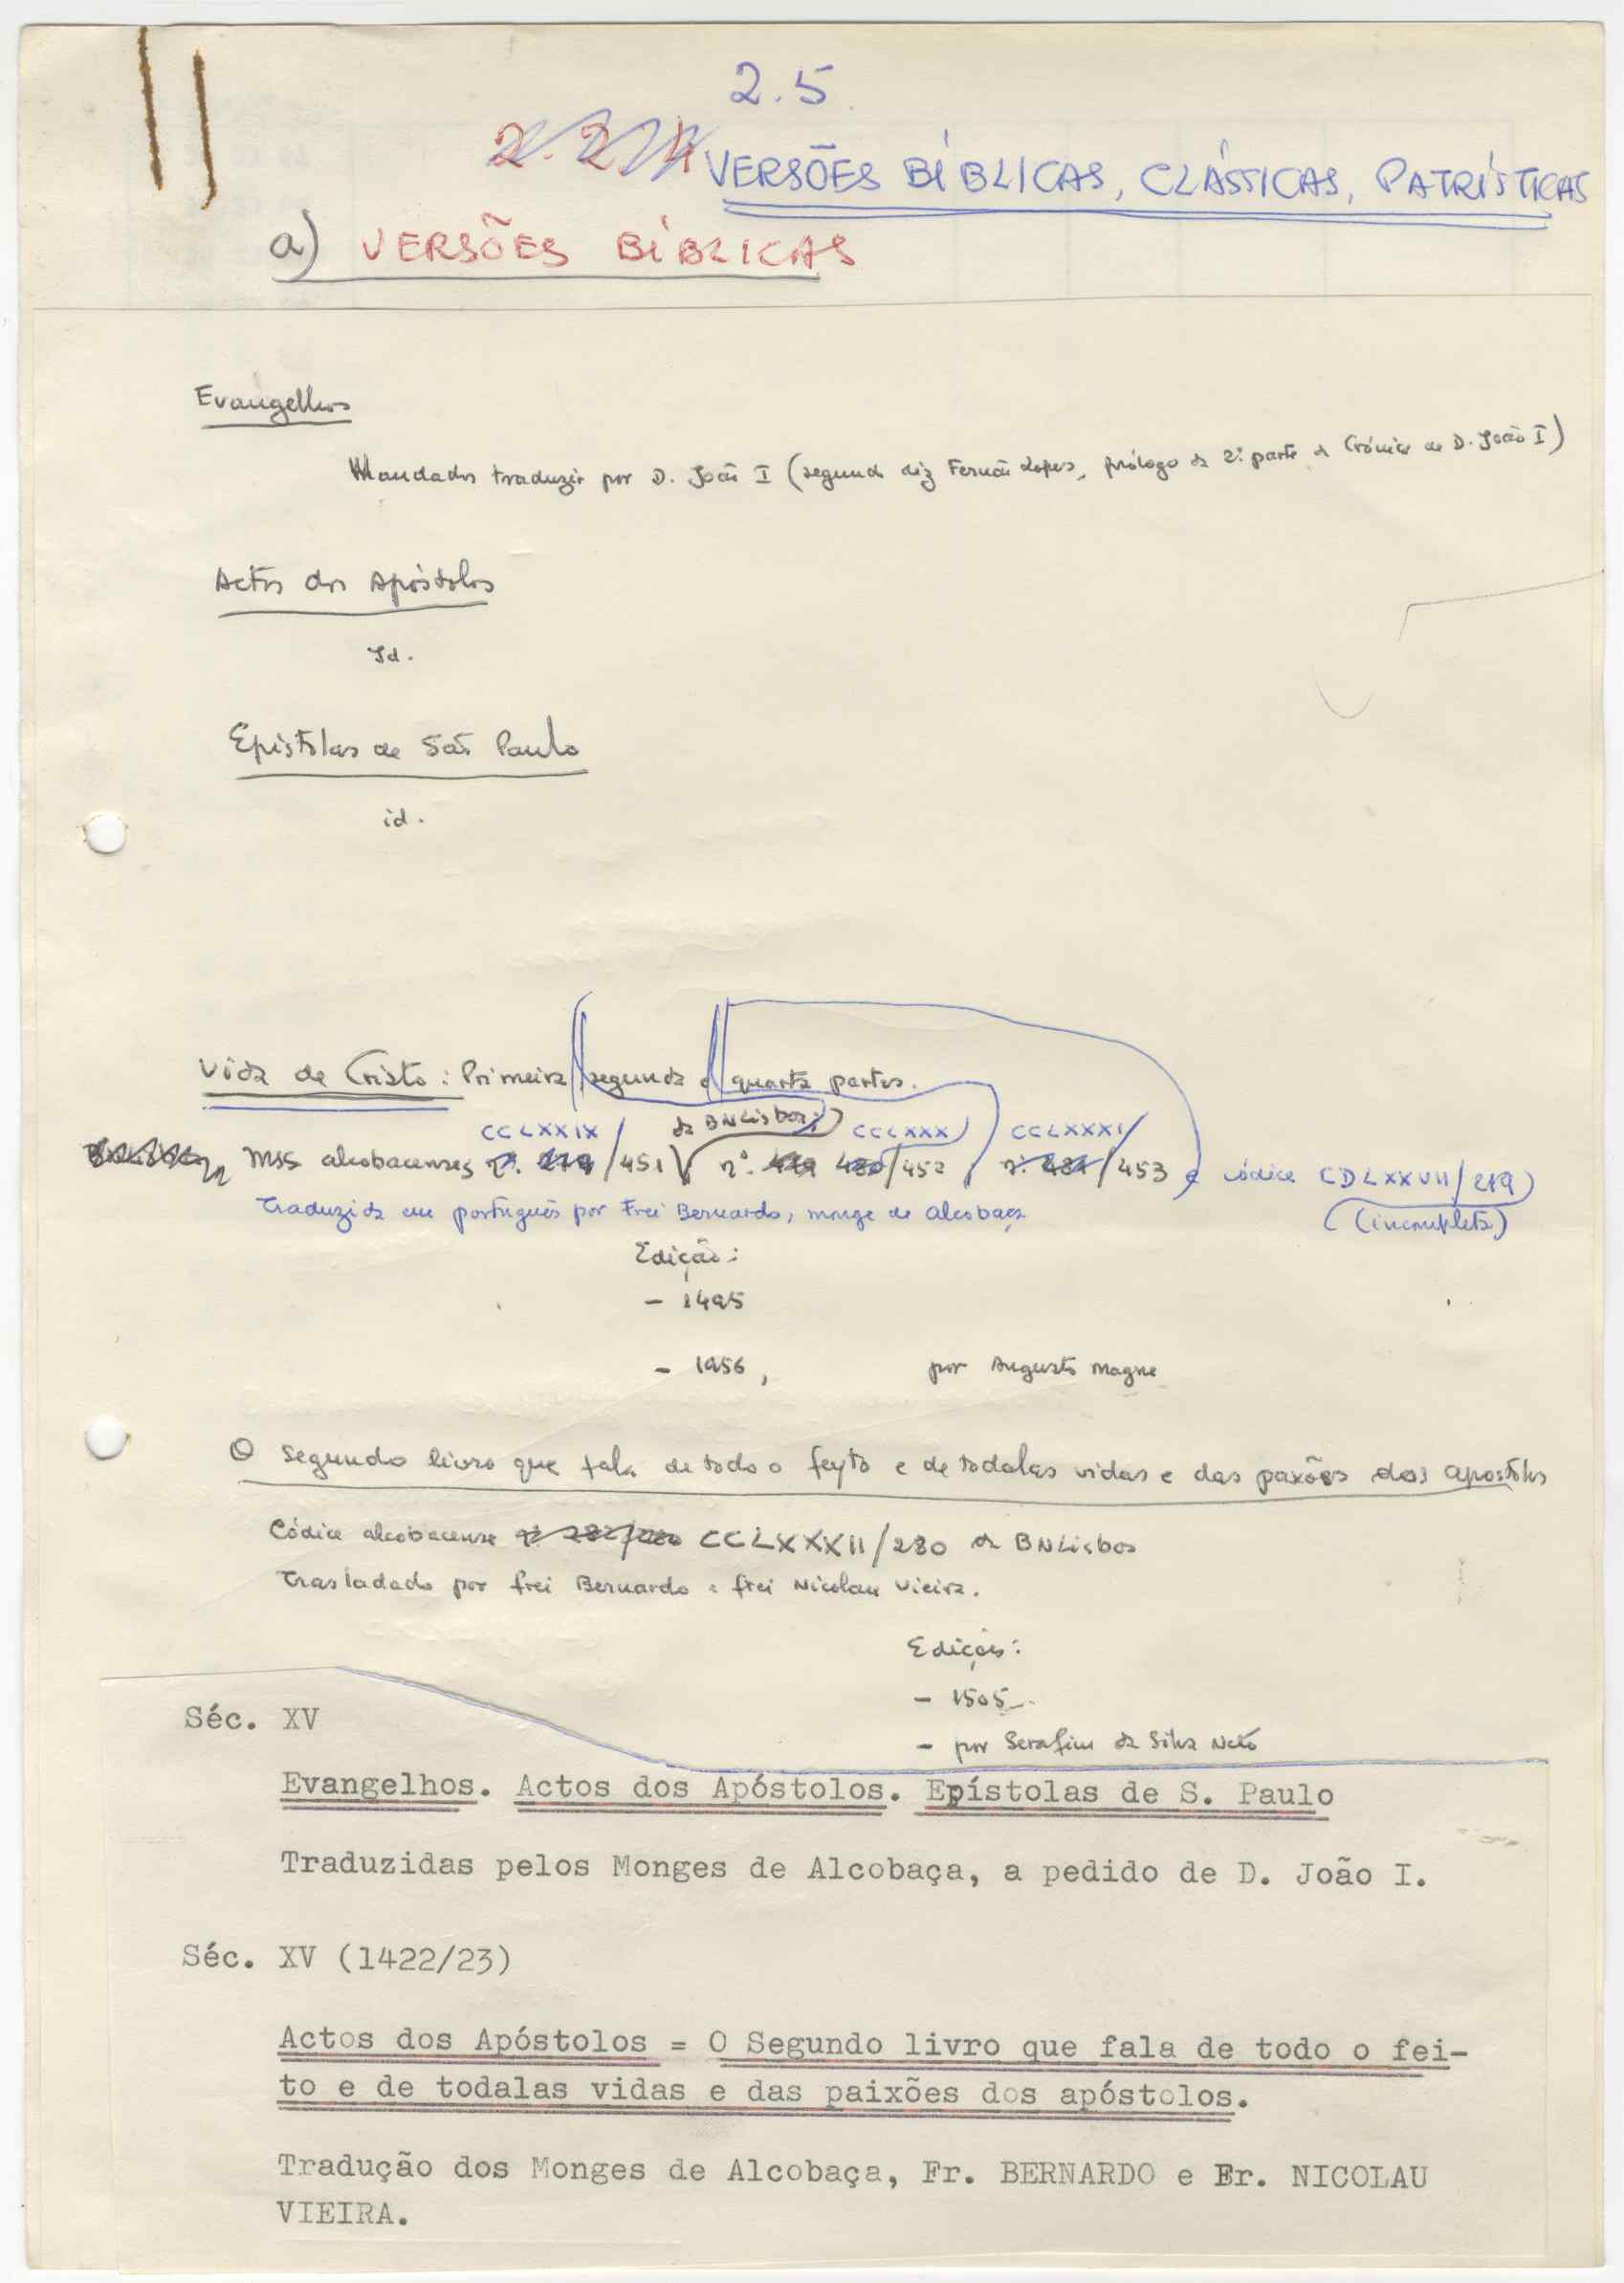 2.5
2.2.4 VERSÕES BÍBLICAS, CLÁSSICAS, PATRÍSTICAS
a) VERSÕES BÍBLICAS
Evangelhos
Mandados traduzir por D. João I (segundo diz Fernão Lopes, prólogo da 2ª parte da Crónica de D. João I)
Actos dos Apóstolos
Id.
Epístolas de São Paulo
id.
Vida de Cristo: Primeira segunda e quarta partes.
CCLXXIX da BNLisboa; CCLXXX CCLXXXI
Mss alcobacenses nº. /451 nº /452, /453 e códice CDLXXVII/219
Traduzida em português por Frei Bernardo, monge de Alcobaça (incompleta)
Edição:
- 1495
- 1956, por Augusto Magne
O Segundo livro que fala de todo o feyto e de todalas vidas e das paxões dos apostolos
Códice alcobacense CCLXXXII/280 da BNLisboa
Trasladado por frei Bernardo e frei Nicolau Vieira.
Edições:
- 1505.
- por Serafim da Silva Neto
Séc. XV
Evangelhos. Actos dos Apóstolos. Epístolas de S. Paulo
Traduzidas pelos Monges de Alcobaça, a pedido de D. João I.
Séc. XV (1422/23)
Actos dos Apóstolos = O Segundo livro que fala de todo o fei-
to e de todalas vidas e das paixões dos apóstolos.
Tradução dos Monges de Alcobaça, Fr. BERNARDO e Fr. NICOLAU
VIEIRA.